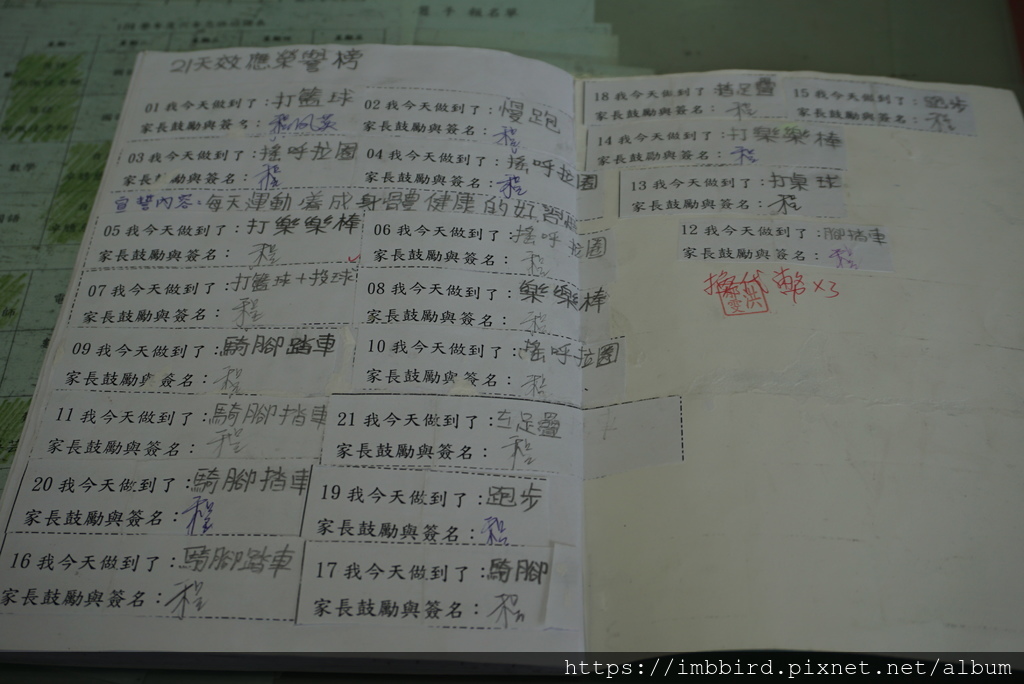 21天效應榮譽榜
01 我今天做到了：打籃球
家長鼓勵與簽名：
02 我今天做到了：慢跑
家長鼓勵與簽名：程
03 我今天做到了：搖呼拉圈
家長鼓勵與簽名：程
04 我今天做到了：搖呼拉圈
家長鼓勵與簽名：程
宣誓內容：每天運動養成身體健康的好習慣
05 我今天做到了：打樂樂棒
家長鼓勵與簽名：程
06 我今天做到了：搖呼拉圈
家長鼓勵與簽名：程
07 我今天做到了：打籃球+投球
家長鼓勵與簽名：程
08 我今天做到了：樂樂棒
家長鼓勵與簽名：程
09 我今天做到了：騎腳踏車
家長鼓勵與簽名：程
10 我今天做到了：搖呼拉圈
家長鼓勵與簽名：程
11 我今天做到了：騎腳踏車
家長鼓勵與簽名：程
21 我今天做到了：
家長鼓勵與簽名：程
20 我今天做到了：騎腳踏車
家長鼓勵與簽名：程
19 我今天做到了：跑步
家長鼓勵與簽名：程
16 我今天做到了：騎腳踏車
家長鼓勵與簽名：程
17 我今天做到了：騎腳
家長鼓勵與簽名：程
18 我今天做到了：
家長鼓勵與簽名：程
15 我今天做到了：跑步
家長鼓勵與簽名：程
14 我今天做到了：打樂樂棒
家長鼓勵與簽名：程
13 我今天做到了：打桌球
家長鼓勵與簽名：程
12 我今天做到了：腳踏車
家長鼓勵與簽名：程
換代幣×3
https://imbbird.pixnet.net/album